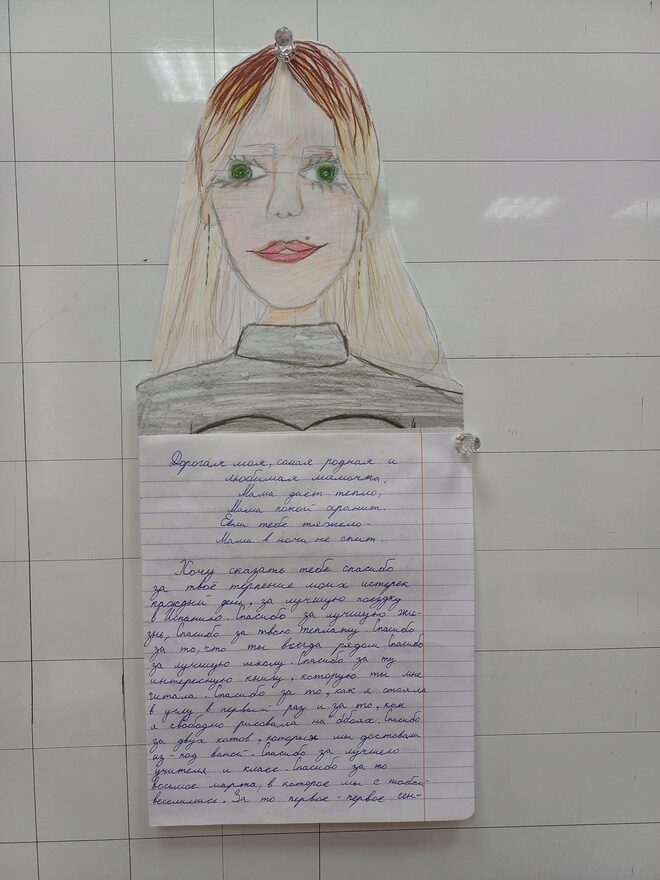 Дорогая моя, самая родная и
любимая мамочка,
Мама дает тепло,
Мама покой хранит.
Если тебе тяжело-
Мама в ночи не спит.
Хочу сказать тебе спасибо
за твоё терпение моих истерек
каждый день, за лучшую поездку
в Испанию. Спасибо за лучшую жи-
знь, Спасибо за твою теплату. Спасибо
за то, что ты всегда рядом. Спасибо
за лучшую школу. Спасибо за ту
интересную книгу, которую ты мне
читала. Спасибо за то, как я стояла
в углу в первый раз и за то, как
я свободно рисовала на обоях. Спасибо
за двух котов, которых мы доставали
из-под ваной. Спасибо за лучшего
учителя и класс. Спасибо за то
восьмое марта, в которое мы с тобой
веселились. За то первое-первое сен-